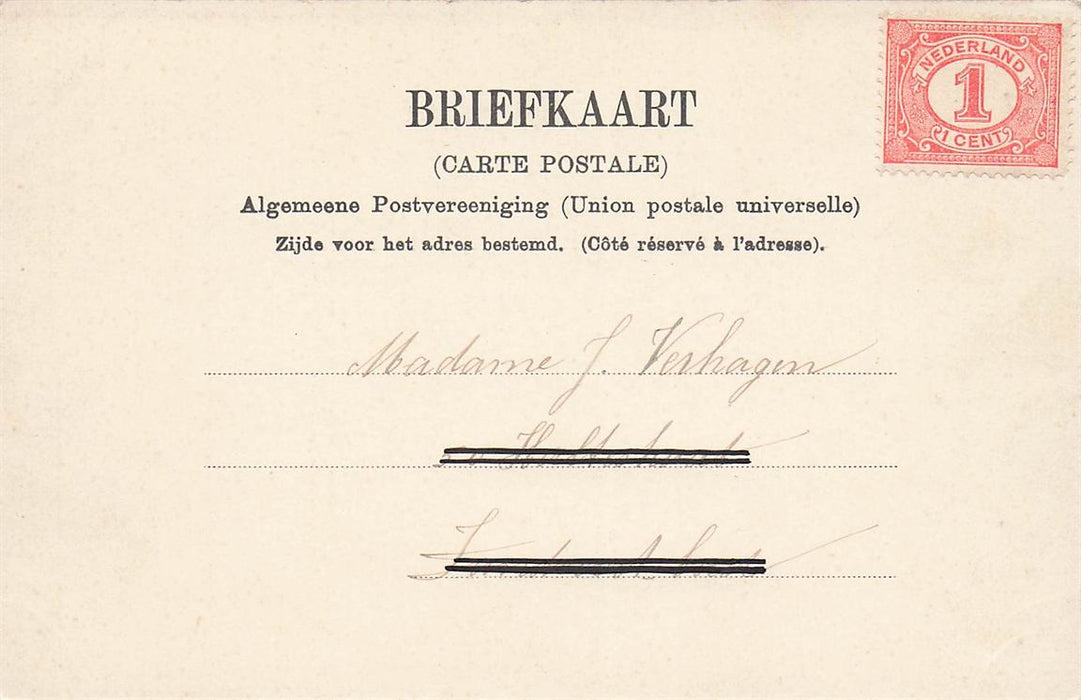 NEDERLAND
1
1 CENT
BRIEFKAART
(CARTE POSTALE)
Algemeene Postvereeniging (Union postale universelle)
Zijde voor het adres bestemd. (Côté réservé à l'adresse).
Madame J. Verhagen